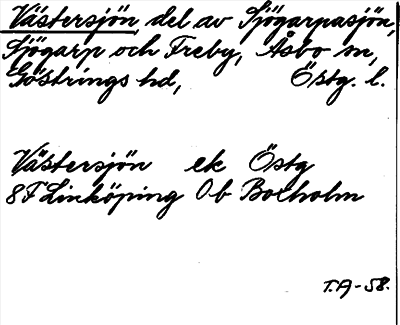 Västersjön, del av Sjögarpasjön,
Sjögarp och Treby, Åsbo sn,
Göstrings hd, Östg. l.
Västersjön ek Östg
8F Linköping 0b Boxholm
T.A-58.